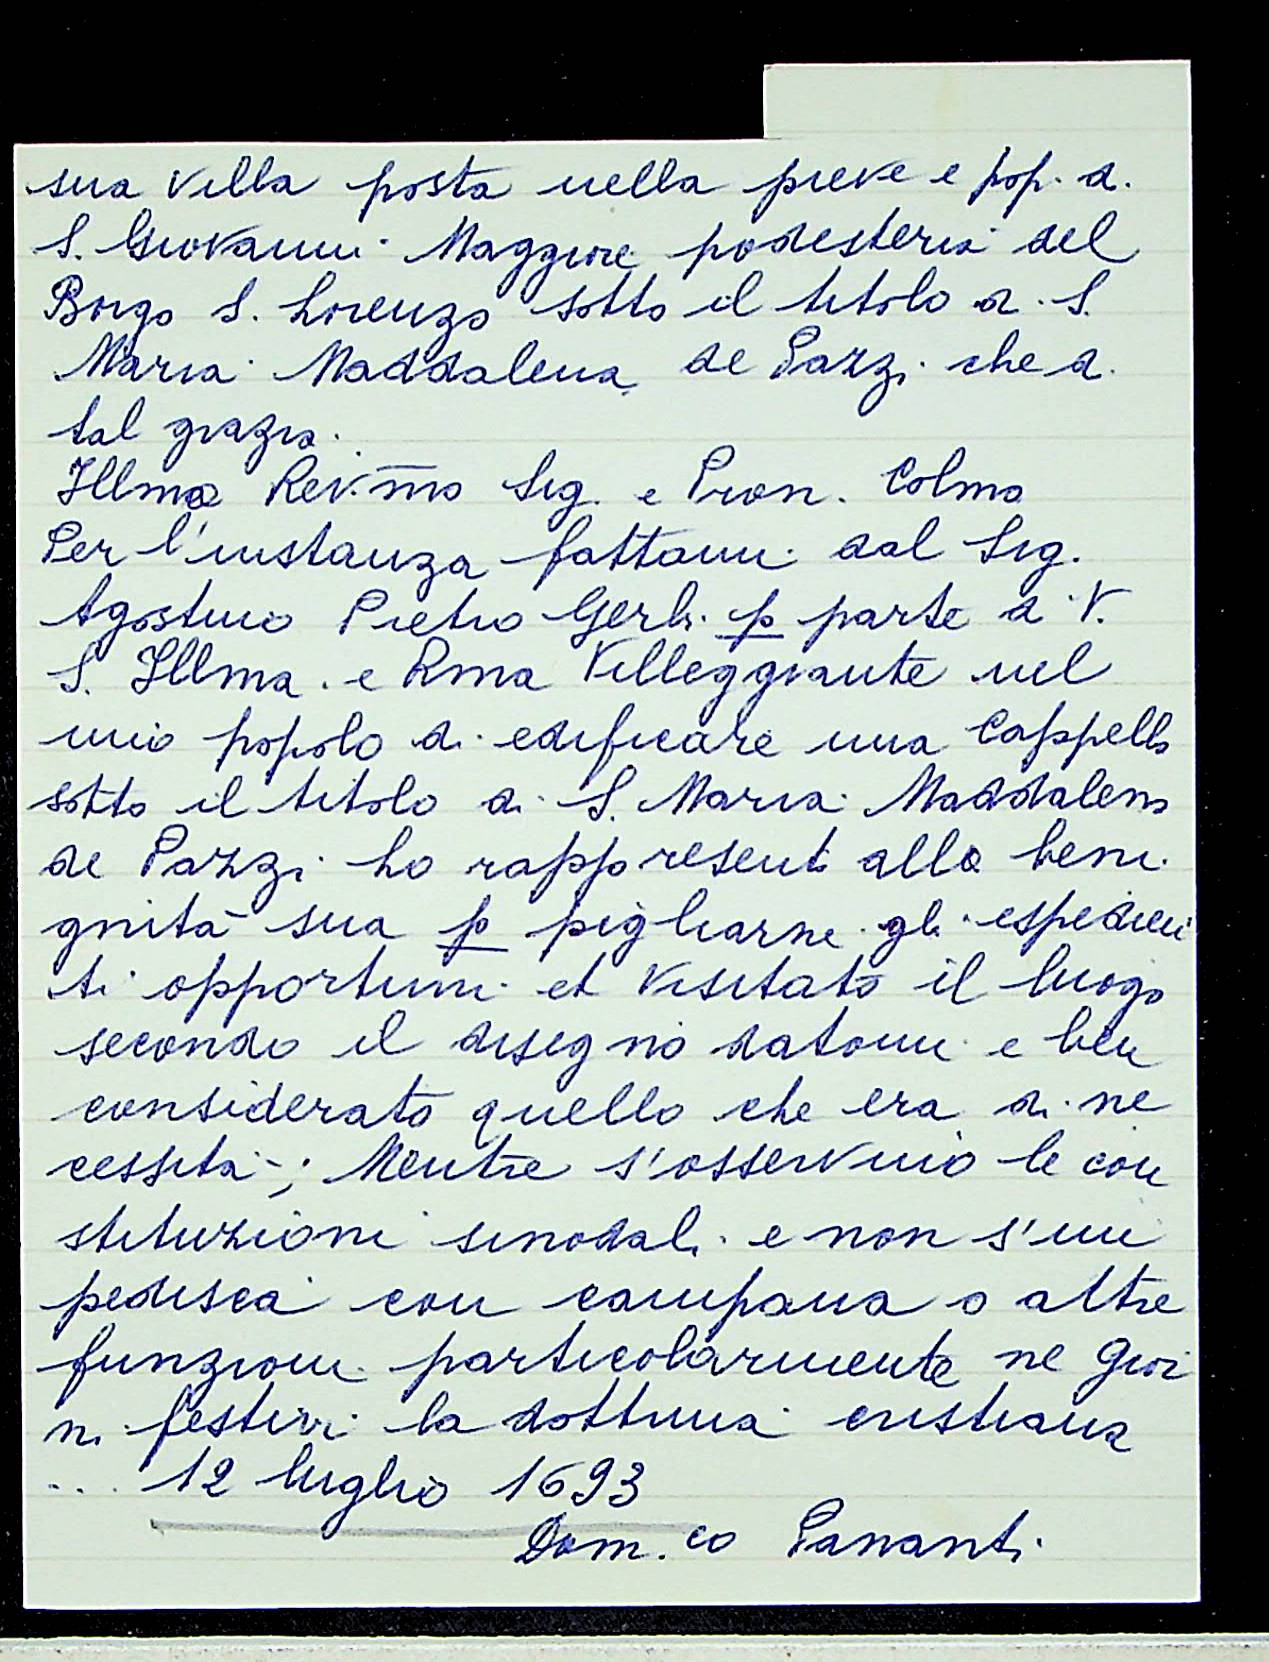 sua villa posta nella pieve e pop. di
S. Giovanni Maggiore podesteria del
Borgo S. Lorenzo sotto il titolo di S.
Maria Maddalena de Pazzi che di
tal grazia.
Illmo Rev.mo Sig. e Pron. Colmo
Per l'instanza fattami dal Sig.
Agostino Pietro Gerli p parte di V.
S. Illma. e Rma Villeggiante nel
mio popolo di edificare una Cappella
sotto il titolo di S. Maria Maddalena
de Pazzi ho rappresent alla beni
gnità sua p pigliarne gli espedien
ti opportuni et visitato il luogo
secondo il disegno datomi e ben
considerato quello che era di ne
cessità; Mentre s'osservino le con
stituzioni sinodali e non s'im
pedisca con campana o altre
funzioni particolarmente ne gior
ni festivi la dottrina cristiana
... 12 luglio 1693
Dom.co Pananti